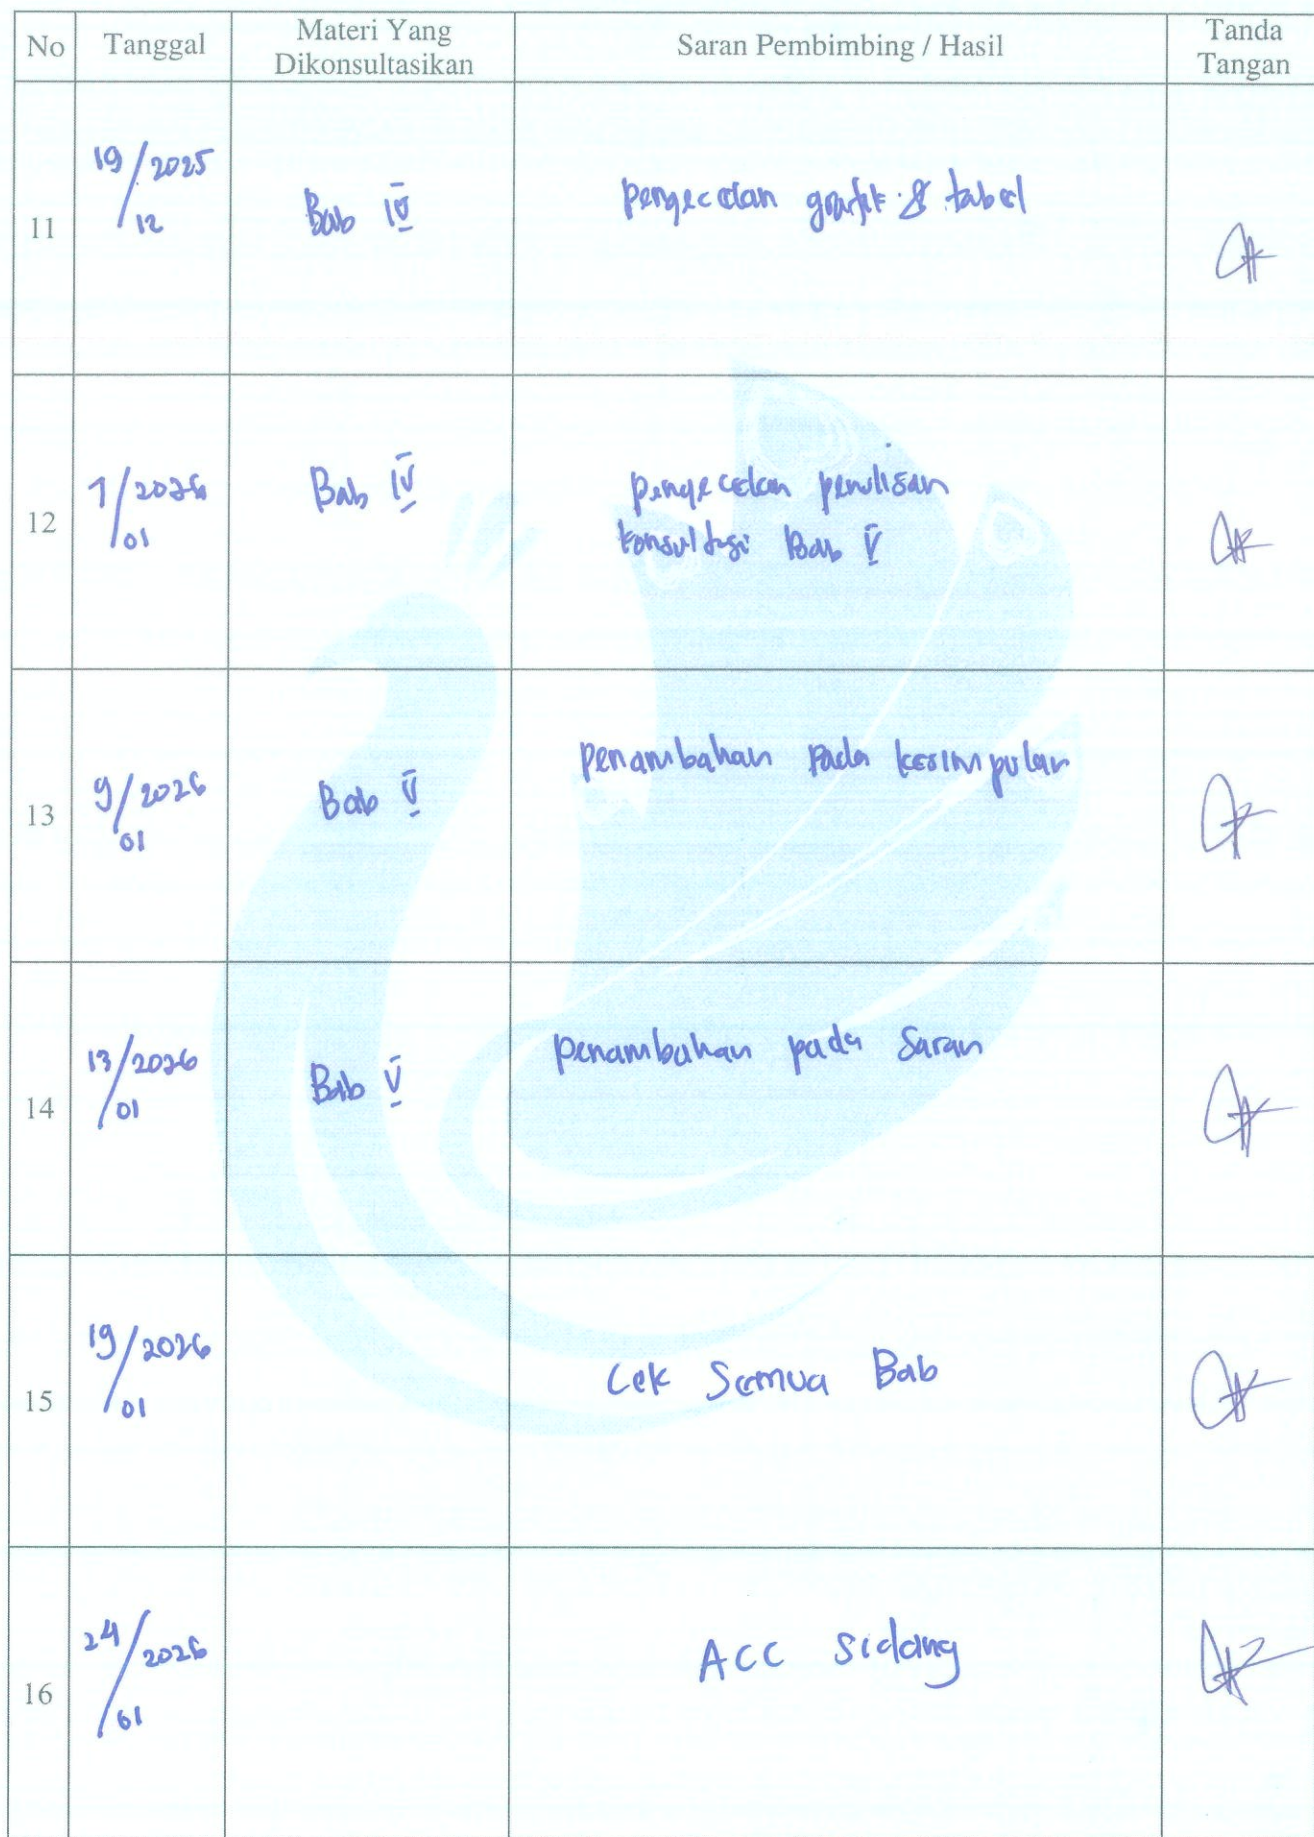 No Tanggal Materi Yang Dikonsultasikan Saran Pembimbing / Hasil Tanda Tangan
11 19/12 2025 Bab IV Pengecekan grafik & tabel
12 1/01 2026 Bab IV pengecekan penulisan
konsultasi Bab V
13 9/01 2026 Bab V penambahan pada kesimpulan
14 13/01 2026 Bab V penambahan pada Saran
15 19/01 2026 Cek Semua Bab
16 24/01 2026 ACC sidang